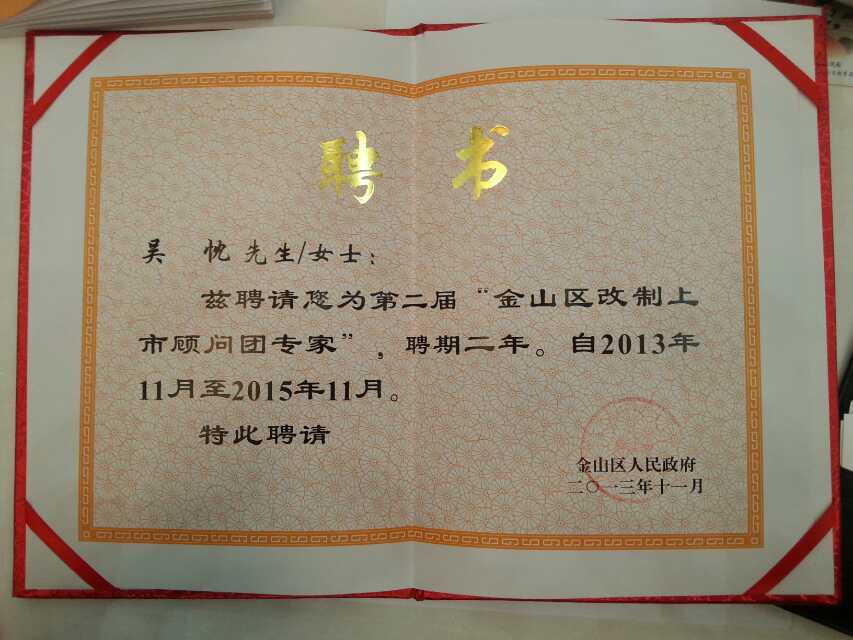 聘书
吴 忱 先生/女士：
兹聘请您为第二届“金山区改制上
市顾问团专家”，聘期二年。自2013年
11月至2015年11月。
特此聘请
金山区人民政府
二〇一三年十一月